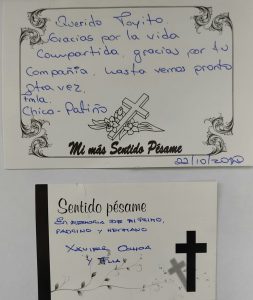 Querido Toyito
Gracias por la vida
Compartida, gracias por tu
Compañia, hasta vernos pronto
otra vez.
Fmla.
Chica - Patiño
Mi más Sentido Pésame
22/10/2020
Sentido pésame
En memoria de mi primo,
padrino y hermano
Xavier Ochoa
y Flia